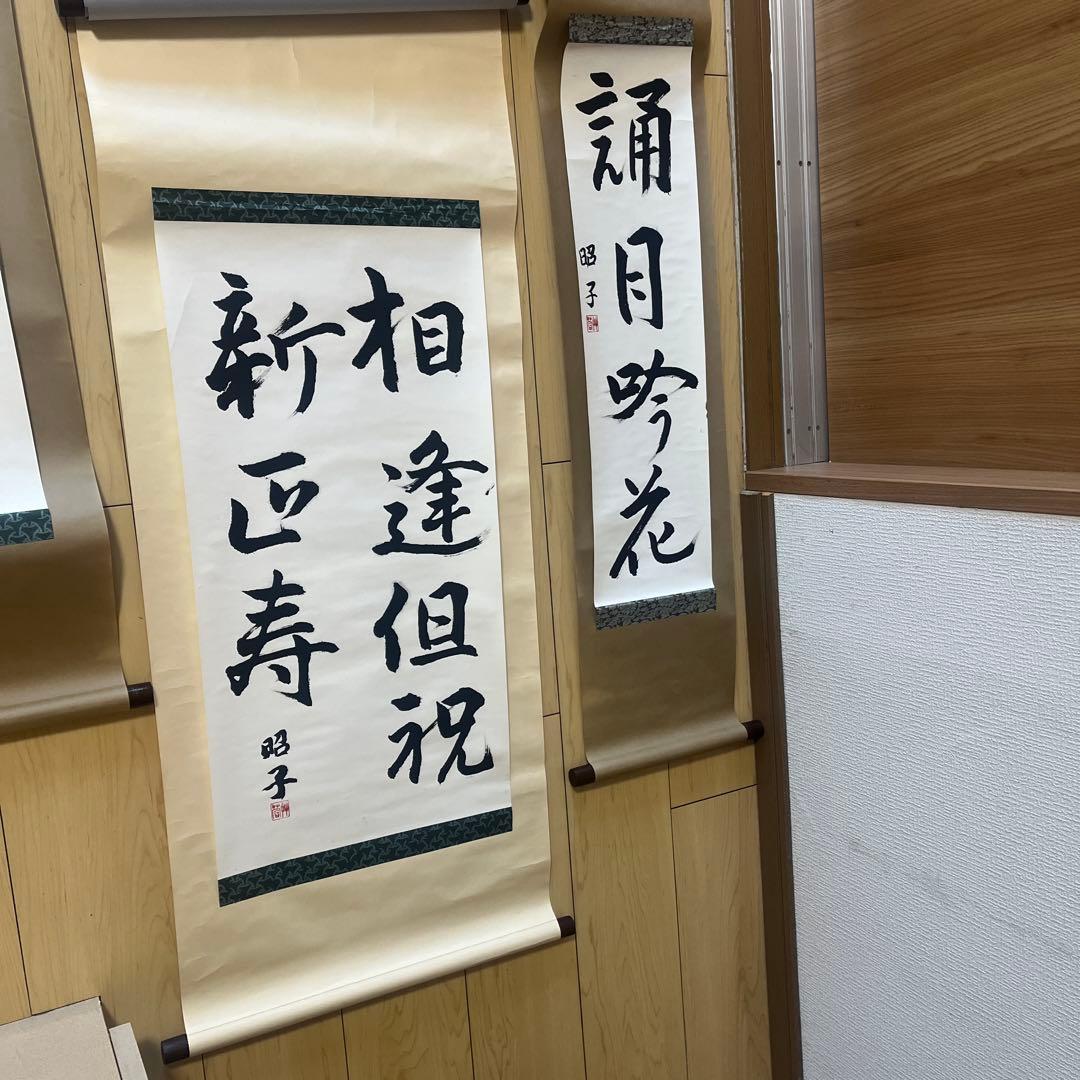 誦月吟花
昭子
相逢但祝
新正寿
昭子